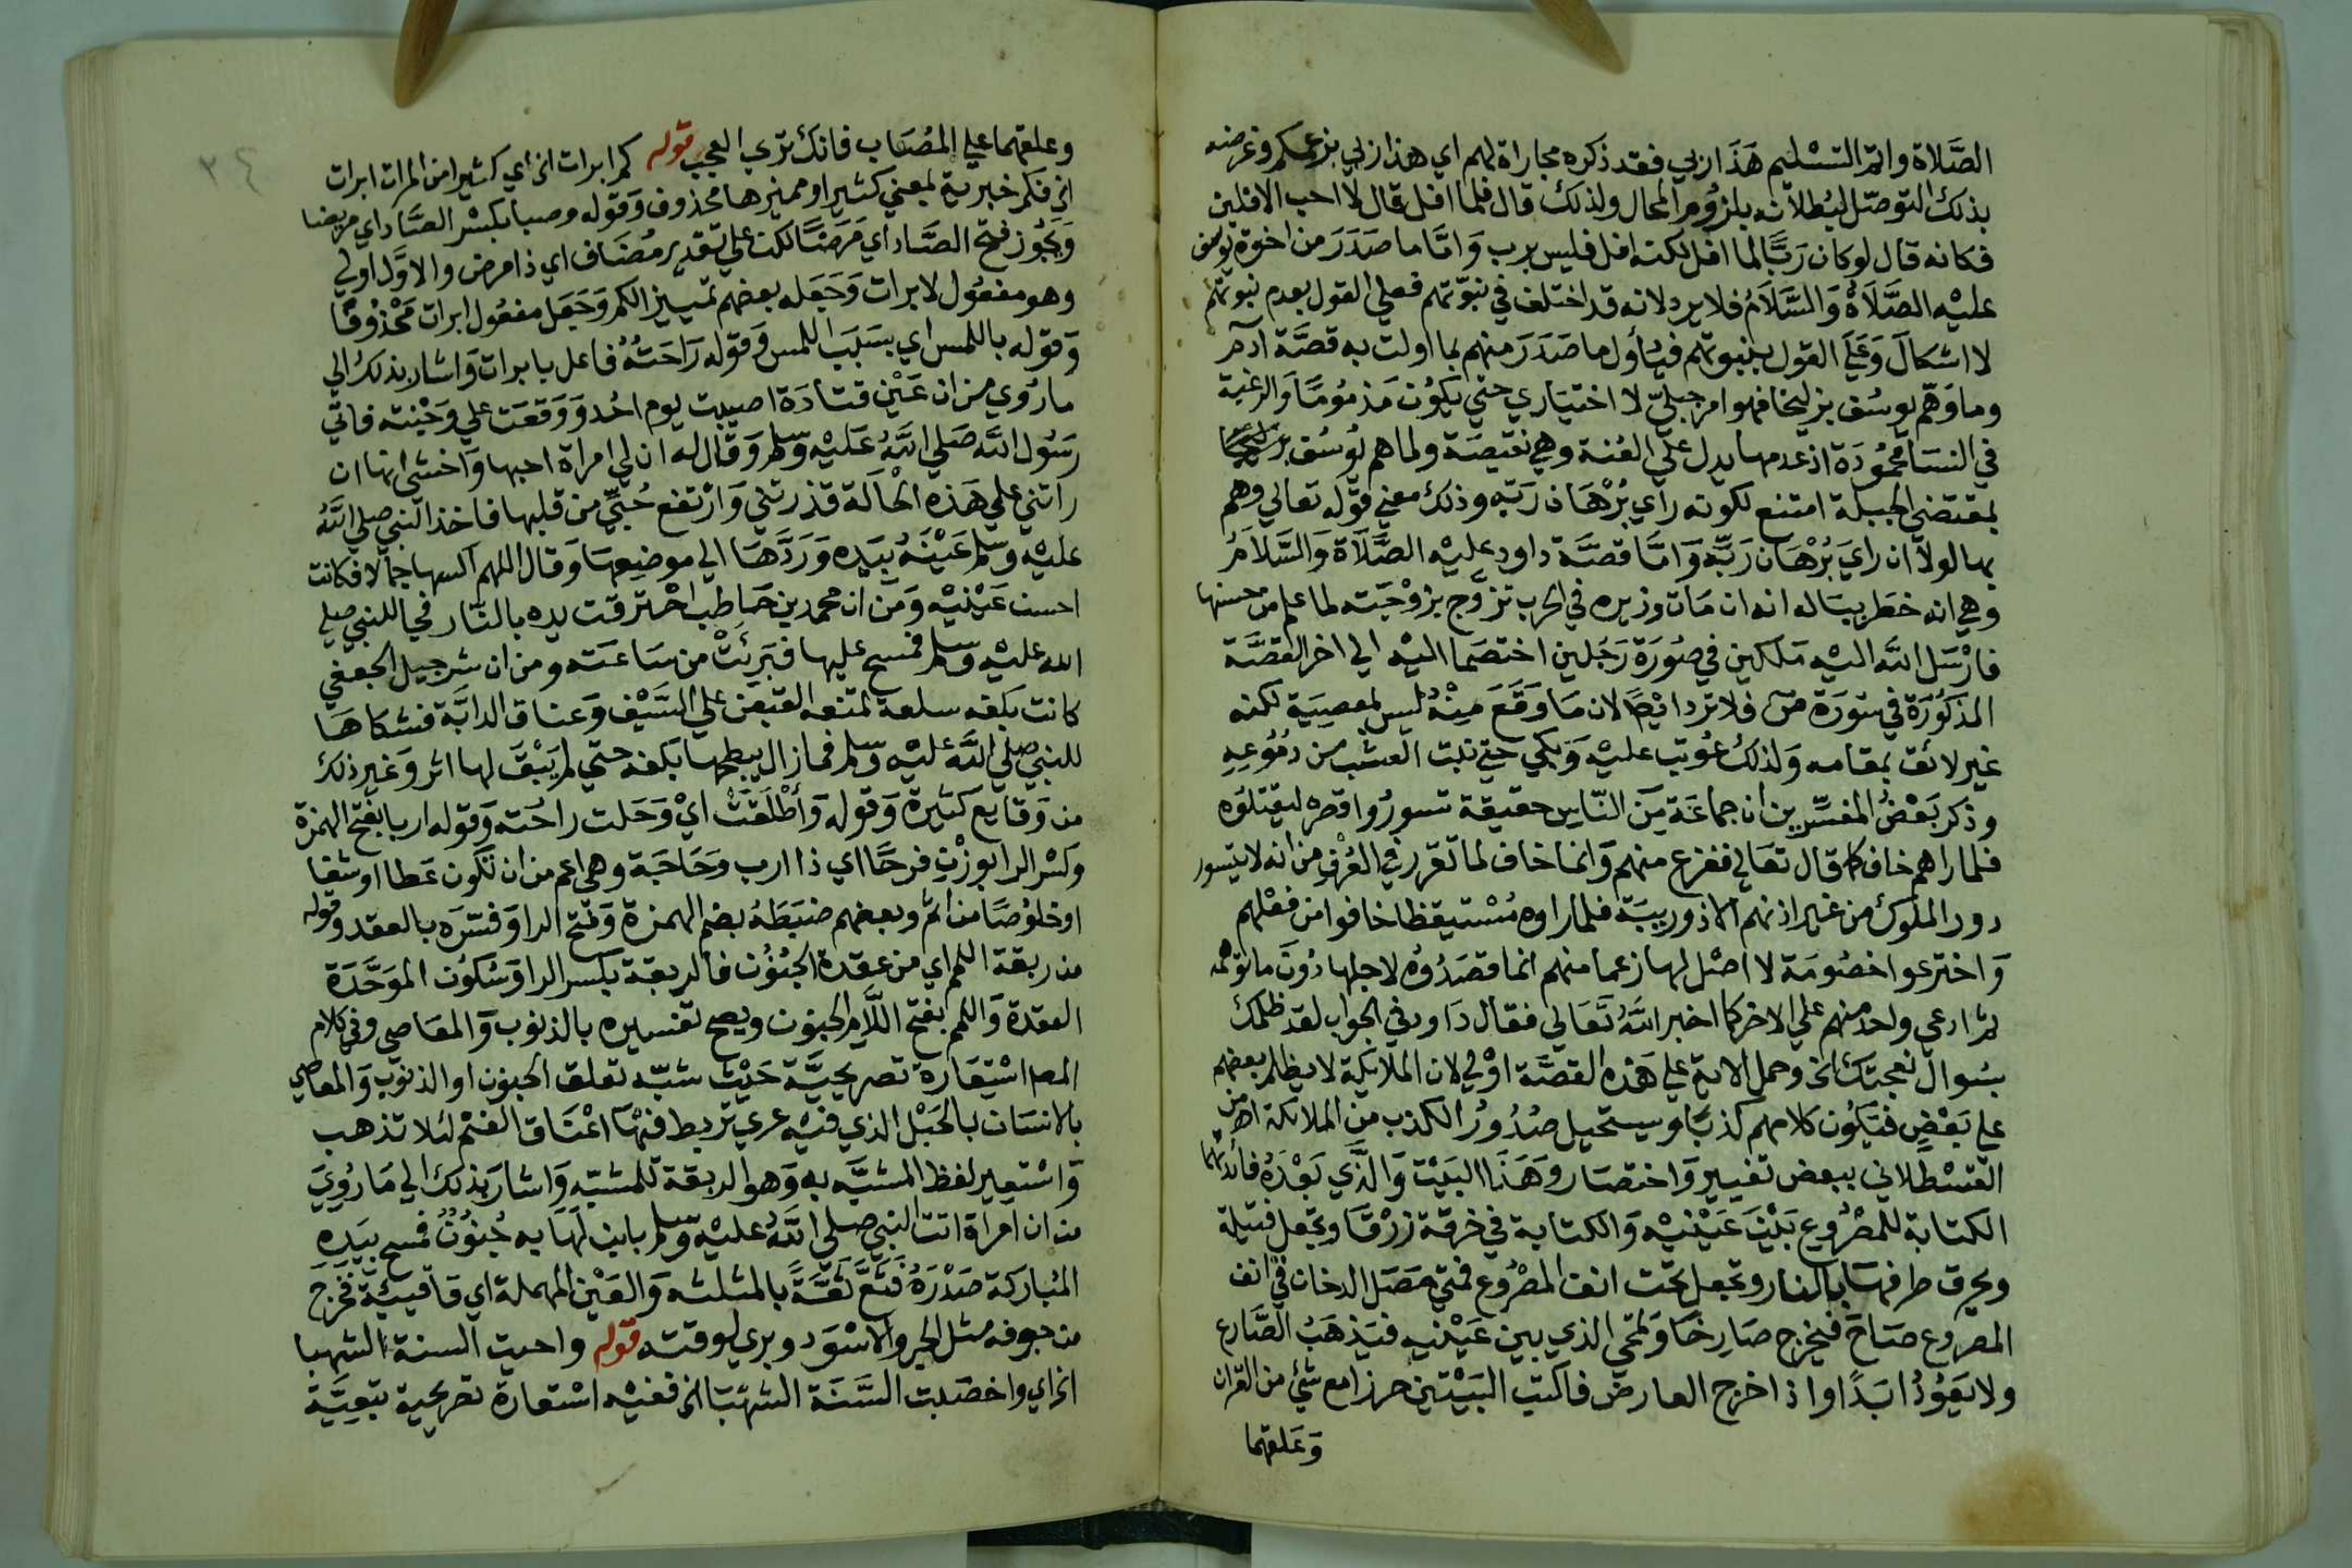 الصَّلاة واتم التسْليم هَذَا ربي فقد ذكره مجاراة لهم اي هذا ربي بزعمكم وغرضه
بذلك التوصّل لبُطلانه بلزُوم المحال ولذلك قال فلما افل قال لا احب الافلين
فكانه قال لو كان رَبًّا لما افل لكنه افل فليس برب وَامَّا ما صَدَرَ من اخوة يوسف
عليْه الصَّلَاةُ وَالسَّلَامُ فلا يرد لانه قد اختلف في نبوّتهم فعلي القول بعدم نبوتهم
لا اشكالَ وَعَلَي القول بنبوتهم فيُأول ما صَدَرَ منهم بما اولت به قصَّة آدم
وما وَهَّم يوسُف بزليخا فهوا مر جبليّ لا اختياري حتي يكوُن مَذمُومًا وَالرغبة
في النسَا محمُودَة اذ عدمها يدل علي العُنة وهي نقيصَة ولما هم يوُسُف بزليخا
بمقتضي الجبلة امتنع لكونه رأي بُرْهَان رَبّه وذلك معني قوله تعالي وهم
بها لولا ان راي بُرْهَان رَبِّه وَامَّا قصَّة داود عليْه الصَّلَاة وَالسَّلَامُ
وهي انه خطر ببَاله انه ان مَات وزيره في الحرب تزوَّج بزوْجَته لما علم من حسنها
فارْسَل اللّه اليْه مَلكين في صُورَة رَجُلين اختصَما اليْه الي اخر القصَّة
المذكوُرَة في سُورَة صۤ فلا ترد ايْضًا لان مَا وَقَعَ مِنْهُ ليس بمعصيَة لكنه
غير لائق بمقامه وَلذلك عُوتب عليْه وَبكي حتي نبت العشب من دمُوُعه
وذكر بَعْضُ المفسِّرين ان جماعَة مِنَ النّاس حقيقة تسورُوا قصره ليقتلوُه
فلما راهم خاف كما قال تعَالي ففزع منهم وَانما خاف لما تقرر في العُرْف من انه لا يتسور
دور الملوك من غير اذنهم الا ذو ريبَة فلما راوه مُسْتيقظا خافوا من فعْلهم
وَاخترعوا خصُومَة لا اصْل لها زعما منهم انما قصَدُوُه لاجلها دُونَ ما توهمه
ثم ادعي واحد منهم علي الاخر كما اخبر اللّه تَعَالي فقال دَاود في الجواب لقد ظلمك
بسُوال نعجتك الخ وحمل الاية علي هَذه القصَّة اوْلي لان الملايكة لا يظلم بعضهم
علي بَعْضٍ فتكوُن كلامهم كذبًا ويستحيل صُدُورُ الكذب من الملائكة اهـ من
القسْطلاني ببعض تغيير وَاختصَار وَهَذَا البَيْت وَالَّذي بَعْدَهُ فائدتهما
الكتابة للمصْرُوع بَيْنَ عَيْنيْه وَالكتابة في خرقة زرْقَا وتجعل فتيلة
ويحرق طرفهَا بالنار وتجعل تحت انف المصْرُوع فمتي حَصَل الدخان في انف
المصروع صَاحَ فيخرج صَارِخًا وَتمحي الذي بين عَيْنيه فيَذهَبُ الصَّارع
ولا يَعوُدُ ابَدًا واذا خرج العارض فاكتب البَيْتين حرزا مع شئ من القران
وَعَلقهما
وعلقهما علي المُصَاب فانك تري العجب قوله كم ابرات الخ اي كثيرا من المرات ابرات
الخ فكم خبريّة بمعني كثيرا ومميزها محذوف وَقوله وصبا بكسْر الصَّاد اي مريضا
وَيَجُوز فتح الصَّاد اي مَرَضًا لكن علي تقدير مُضَاف اي ذا مرض والاوَّل اولي
وهو مفعُول لابرات وَجَعَله بعضهم تمييز الكم وَجَعَل مفعُول ابرات مَحْذُوفًا
وَقوله باللمس اي بسَبَب اللمس وَقوله رَاحَتُهُ فاعل بابرات وَاشار بذلك الي
ما رُوي من ان عَيْن قتادَة اصيبت يوم احُد وَوَقعَت علي وَجْنته فاتي
رَسُول اللّه صَلي اللّهُ عَليْه وَسلم وَقال له ان لي امراة احبها وَاخشي انها ان
راتني علي هَذه الحَالَة قذرتني وَارْتفع حُبيِّ من قلبها فاخذ النبي صلي اللّهُ
عليْه وسلم عَيْنَهُ بيَده وَرَدَّهَا الي موضعهَا وَقال اللهم اكسها جمالا فكانت
احسن عَيْنيْه وَمن ان محمد بن حَاطب احْترقت يده بالنّار فجا للنبي صلي
الله عليْه وسلم فمسح عليها فبَرِئَتْ من سَاعَته ومن ان شرحبيل الجعفي
كانت بكفه سلعة تمنعه القبض علي السَّيْف وَعنان الدابَّة فشكاهَا
للنبي صلي اللّه عليْه وَسلم فما زال يبطحها بكفه حتي لم يَبْقَ لها اثر وَغير ذلك
من وَقايع كثيرة وَقوله وَأطْلَقَتْ ايْ وَحَلت راحُته وَقوله اربا بفتح الهمزة
وكسْر الرا بوزْن فرحًا اي ذا ارب وحَاجَة وهي اعم من ان تكون عَطا او شفا
او خلوُصًا من اثم وبعضهم ضبَطَهُ بضم الهمزة وَفتح الرا وَفسّرَه بالعقد وقوله
من ربقة اللمم اي من عقدة الجُنوُن فالربقة بكسر الرا وَسُكوُن الموَحَّدَة
العقدة وَاللمم بفتح اللّام الجنون ويصح تفسيره بالذنوب وَالمعَاصي وفي كلام
المص اسْتِعَارة تصريحيَّة حَيْث شبّه تعلق الجنون او الذنوب وَالمعاصي
بالانسَان بالحَبْل الذي فيْه عري تربط فيْهَا اعْنَاق الغنْم لئلا تذهب
وَاسْتعير لفظ المشبَّه به وَهو الربقة للمشبّه وَاشار بذلك الي مَا رُوِيَ
من ان امرَاة اتت النبي صلي اللّهُ عليْه وَسلم بابن لهَا به جُنوُنٌ فمسح بيَدِهِ
المُبَاركة صَدْرَهُ فَثَعَّ ثَعَّةً بالمثلثه وَالعَيْن المهملة اي قَا قيئة فخرجَ
من جوفه مثل الجرو الاسْوَد وبري لوقته قوله واحيت السنة الشهبا
الخ اي واخصَبت السَّنَة الشهْبَا الخ ففيْه اسْتعارة تصريحية تبعيَّة
٣٤